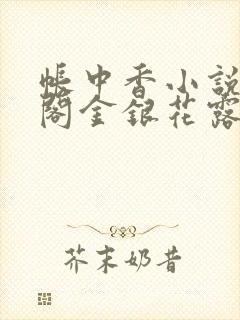 帳中香小說
閣金銀花露
芥末奶昔